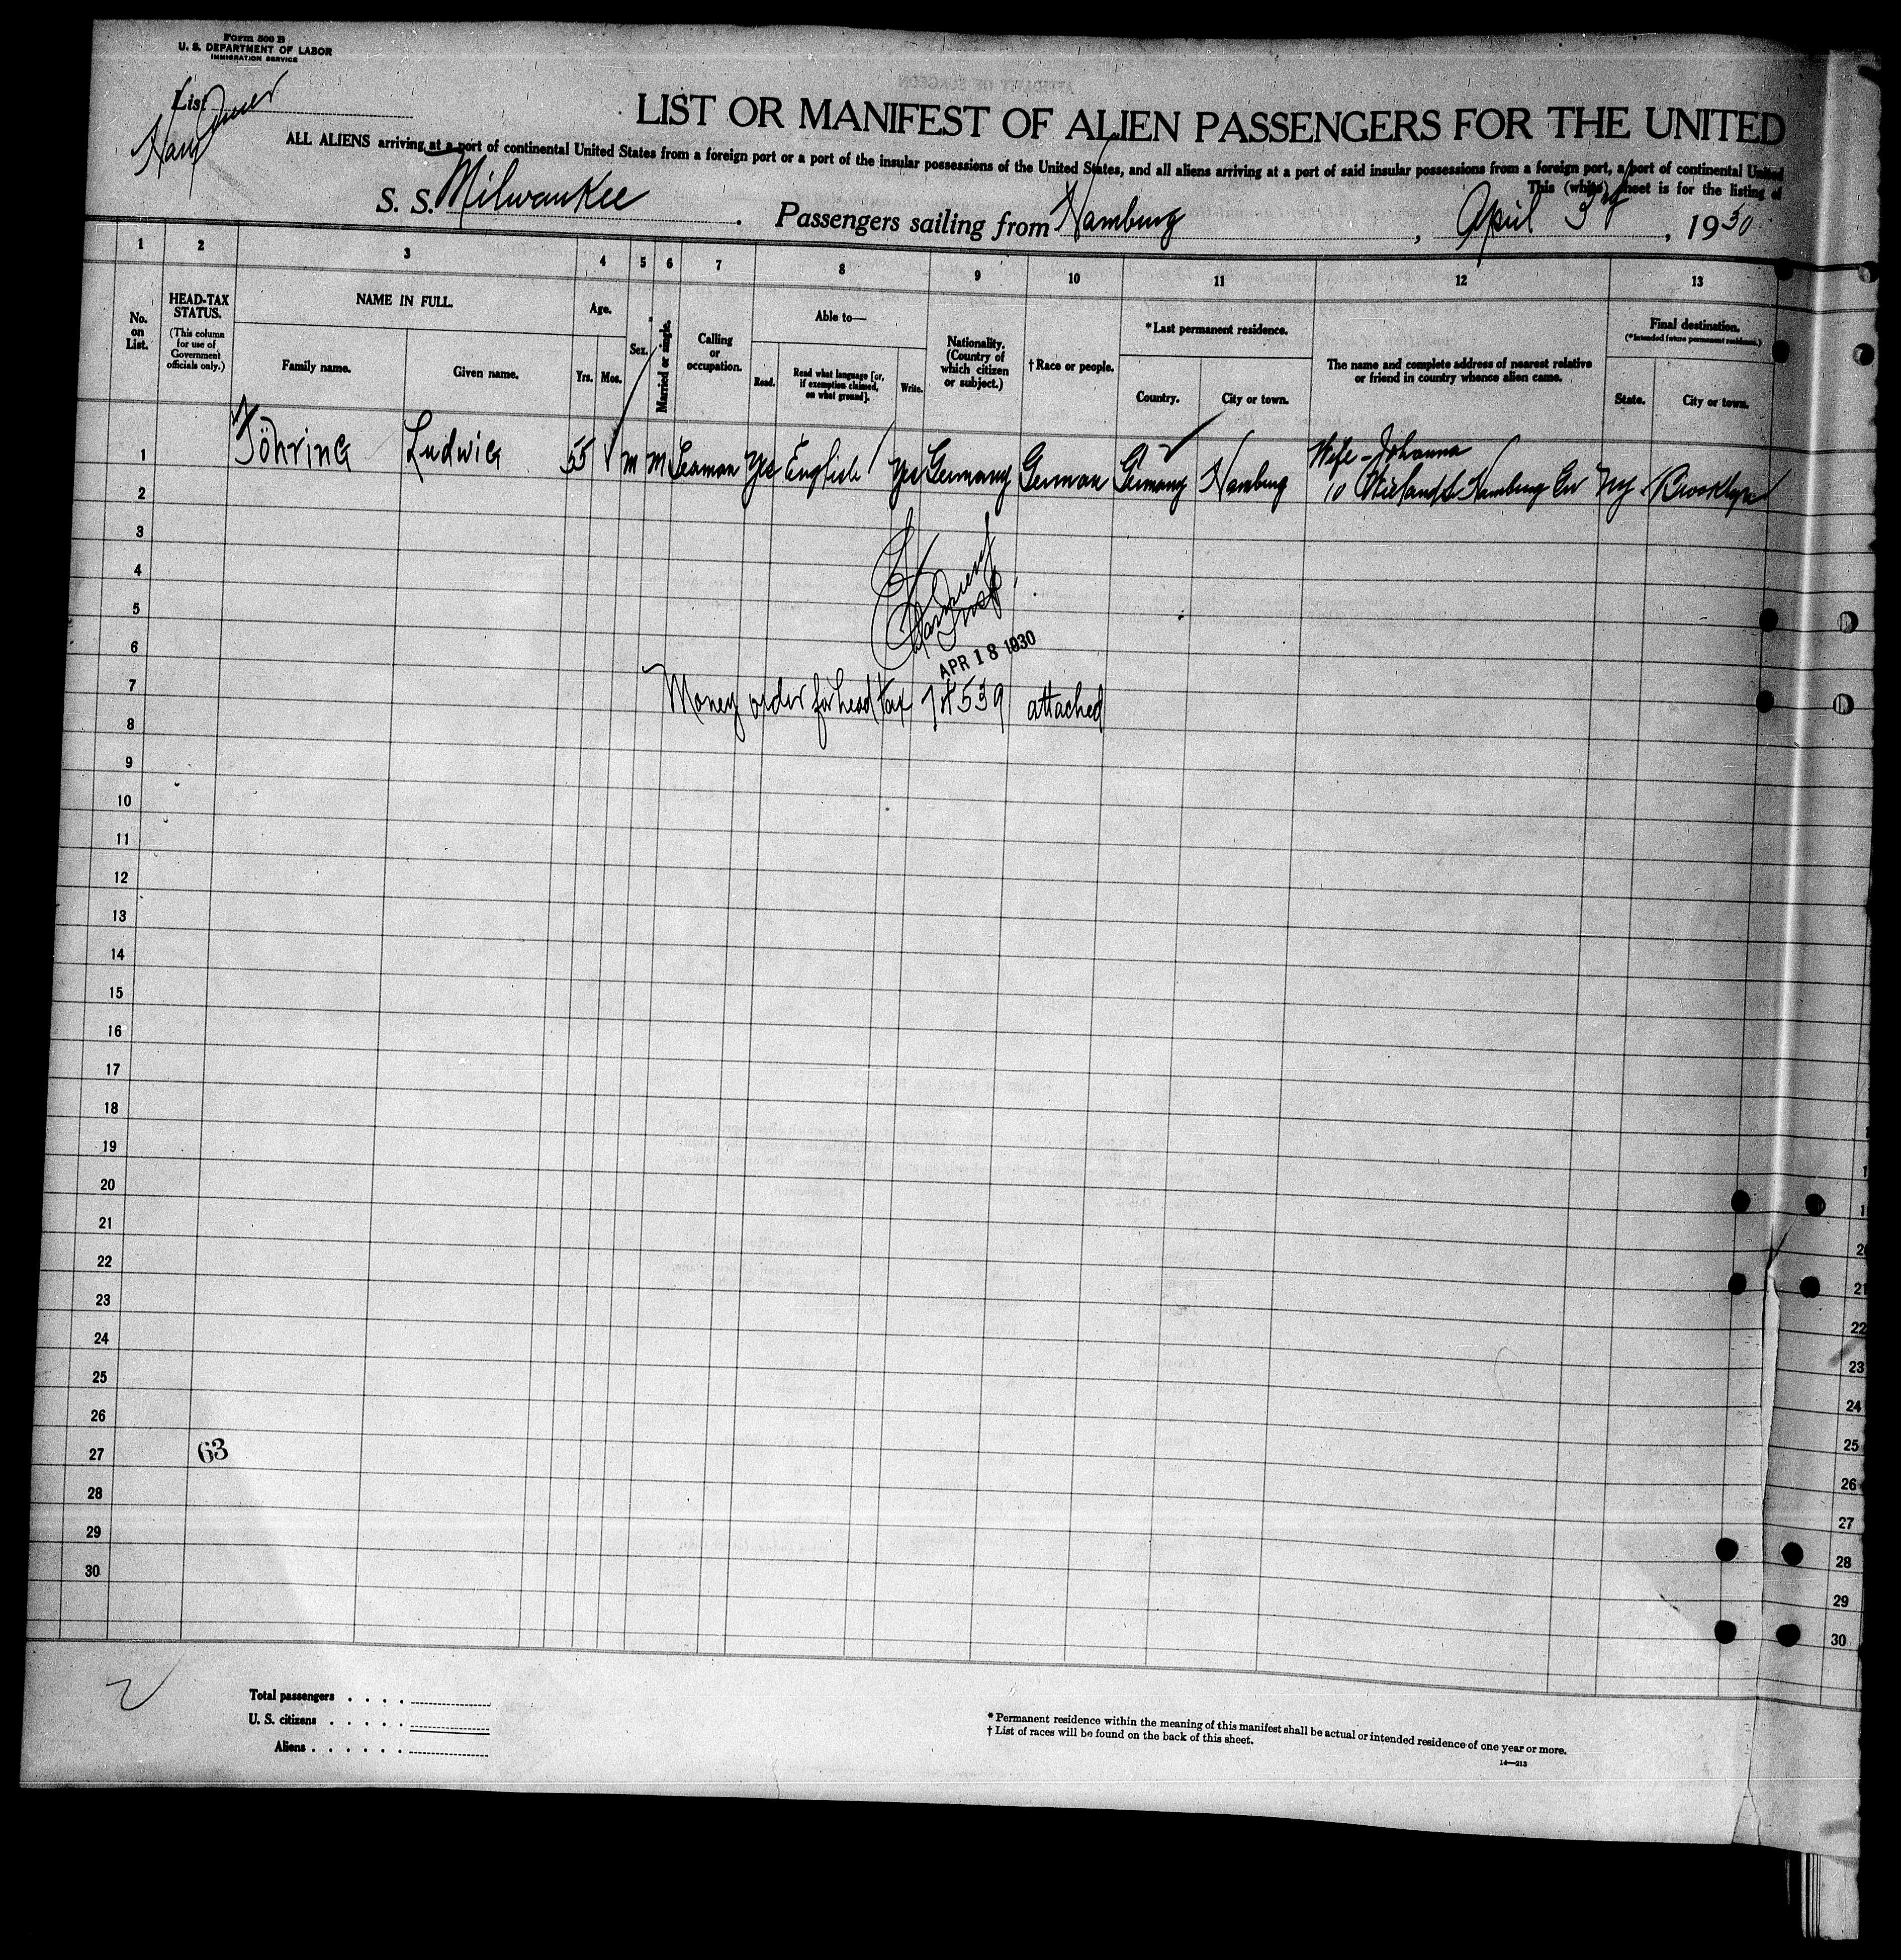 Form 500 B
U. S. DEPARTMENT OF LABOR
IMMIGRATION SERVICE
List
LIST OR MANIFEST OF ALIEN PASSENGERS FOR THE UNITED
ALL ALIENS arriving at a port of continental United States from a foreign port or a port of the insular possessions of the United States, and all aliens arriving at a port of said insular possessions from a foreign port, a port of continental United
This (white) sheet is for the listing of
S. S. Milwaukee . Passengers sailing from Hamburg , April 3rd , 1930
1 2 3 4 5 6 7 8 9 10 11 12 13
No. on List.
HEAD-TAX STATUS.
(This column for use of Government officials only.)
NAME IN FULL.
Family name. Given name.
Age.
Yrs. Mos.
Sex.
Married or single.
Calling or occupation.
Able to—
Read. Read what language [or, if exemption claimed, on what ground]. Write.
Nationality. (Country of which citizen or subject.)
† Race or people.
* Last permanent residence.
Country. City or town.
The name and complete address of nearest relative or friend in country whence alien came.
Final destination.
(* Intended future permanent residence.)
State. City or town.
Wife - Johanna
1 Töhring Ludwig 55 m m Seaman Yes English Yes Germany German Germany Hamburg 10 Hamburg Ger NY Brooklyn
2
3
4
5
6
APR 18 1930
7 Money order for head tax 14539 attached
8
9
10
11
12
13
14
15
16
17
18
19
20
21
22
23
24
25
26
27 63
28
29
30
19
20
21
22
23
24
25
26
27
28
29
30
Total passengers . . . .
U. S. citizens . . . . .
Aliens . . . . . .
* Permanent residence within the meaning of this manifest shall be actual or intended residence of one year or more.
† List of races will be found on the back of this sheet.
14—213